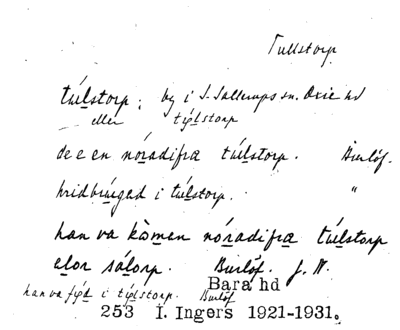 Tullstorp
túlstorp; by i S. Sallerups sn. Oxie hd
eller týlstorp
de e en nóradifra túlstorp. Burlöf.
kridbrúged i túlstorp. "
han va kòmen nóradifra túlstorp
elor sálorp. Burlöf. J. N.
Bara hd
han va fýd i týlstorp. Burlöf
253 I. Ingers 1921-1931.